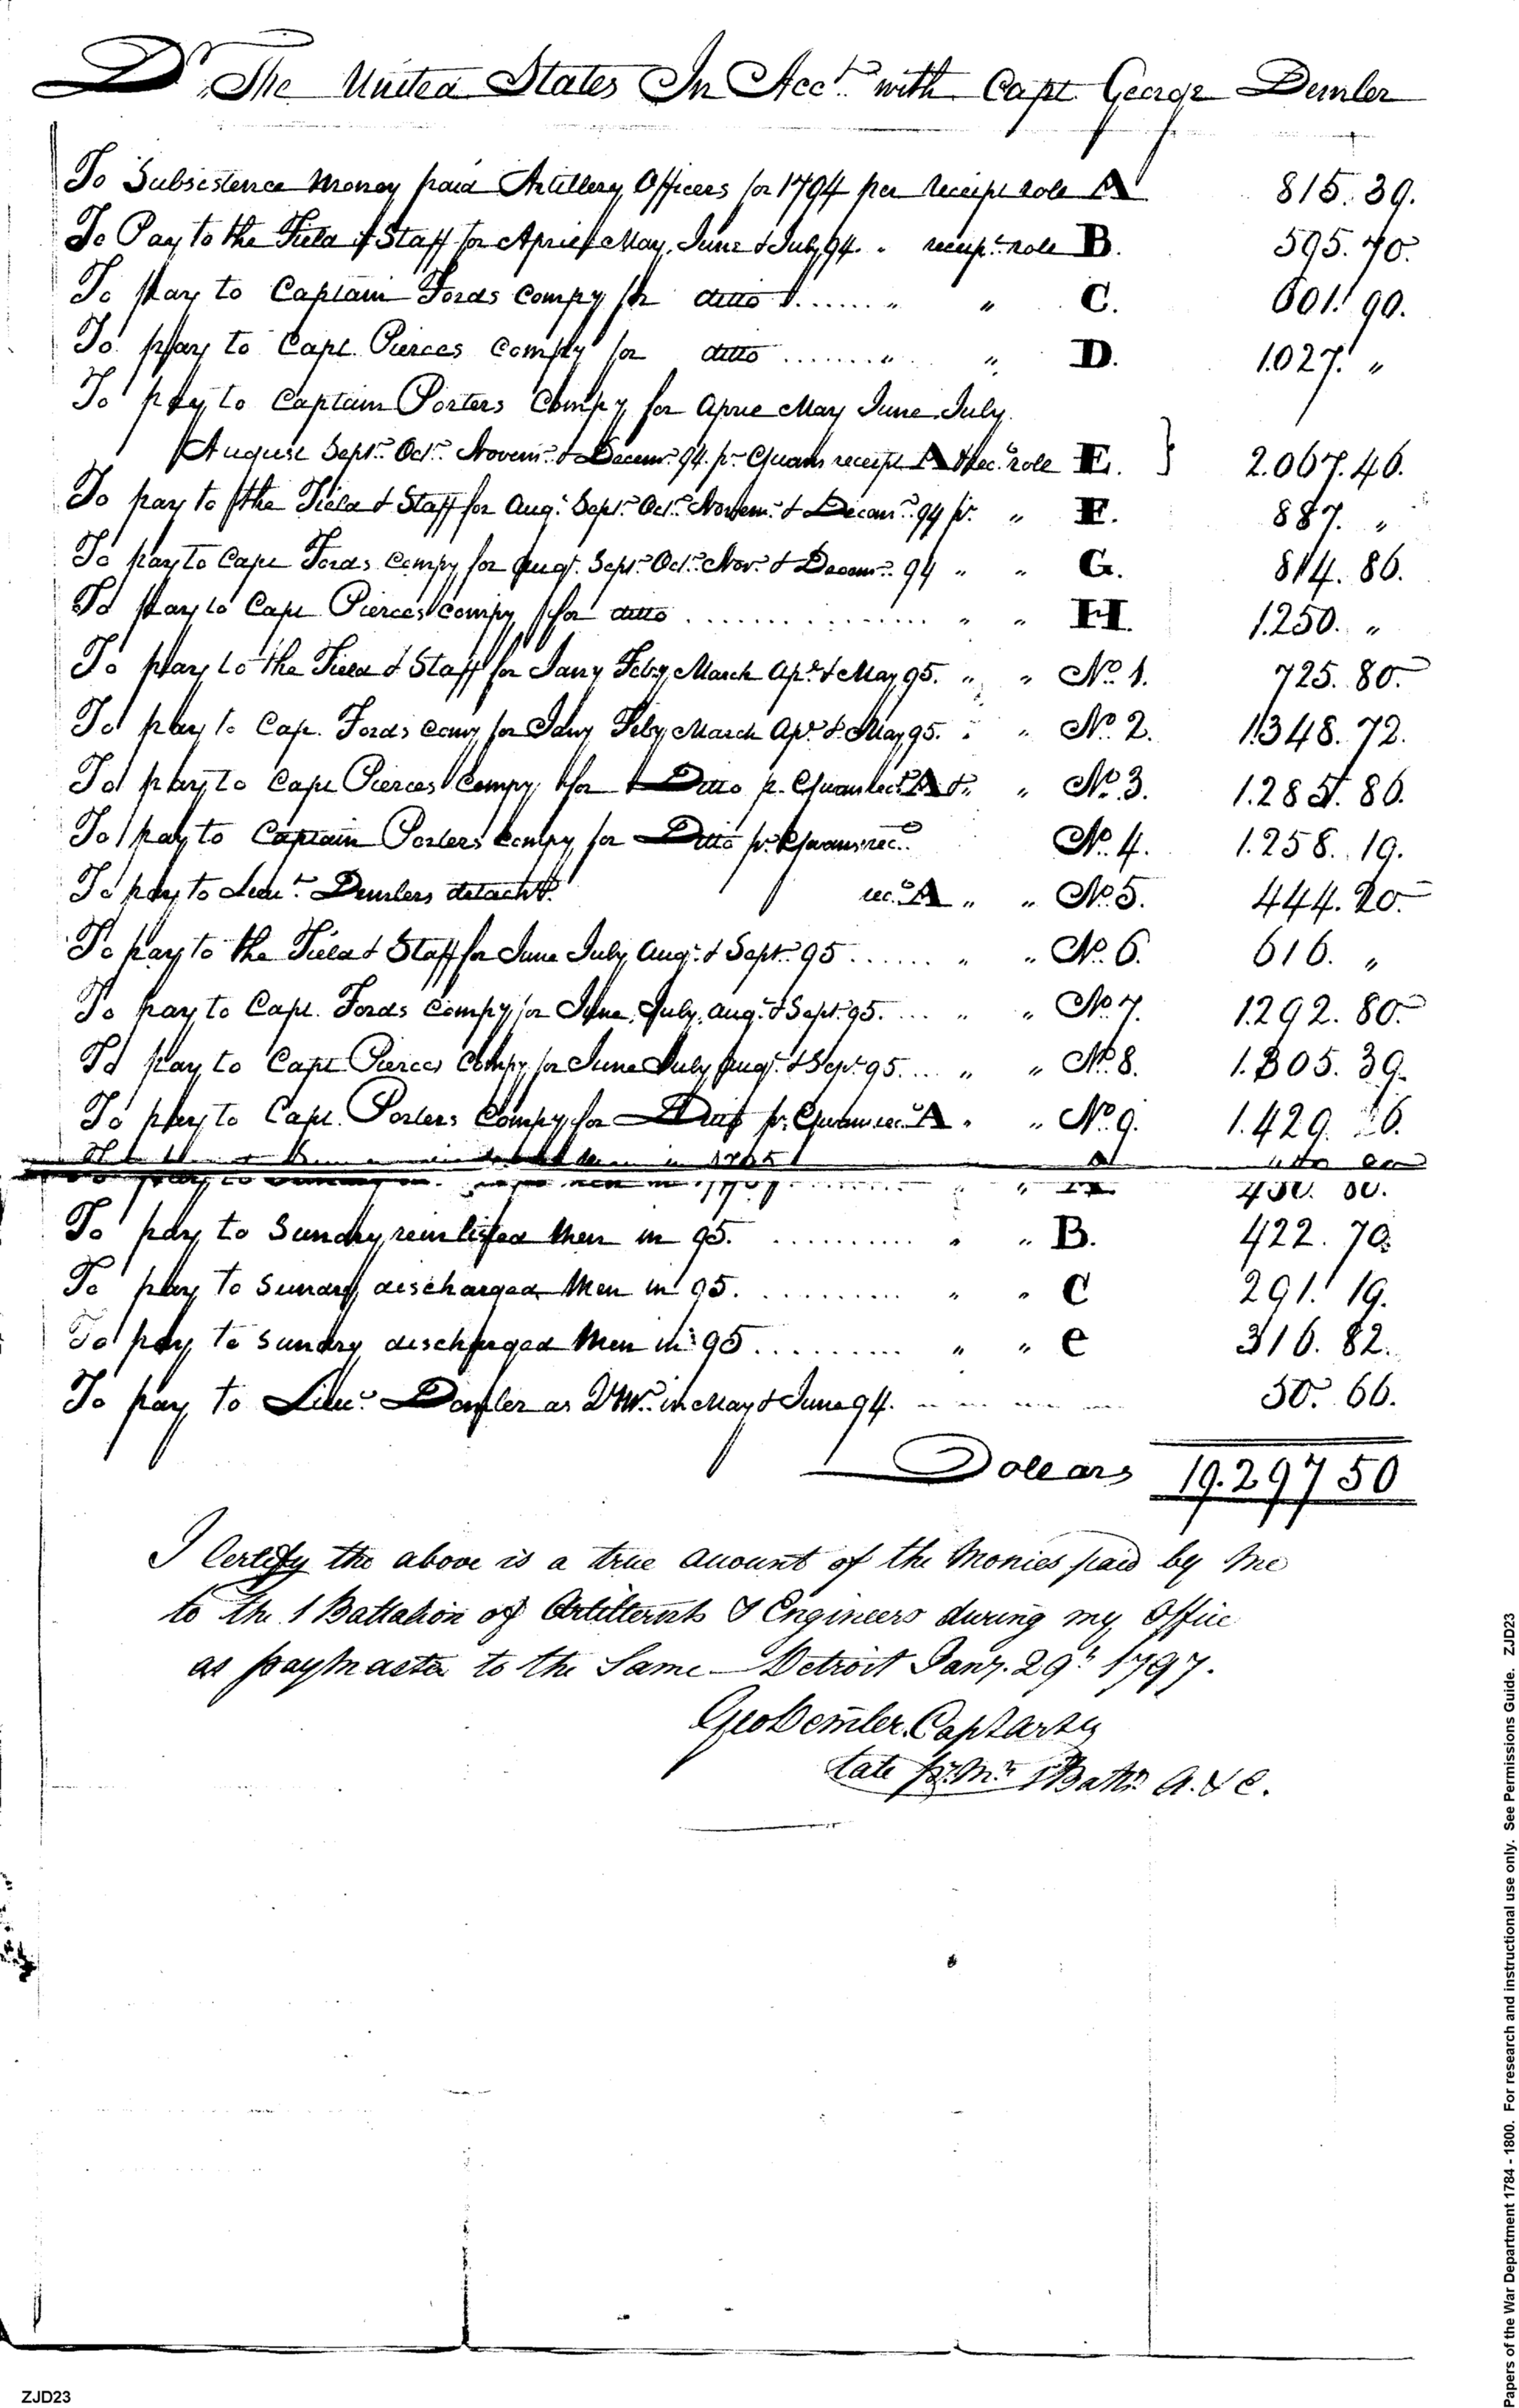 Dr. The United States In Acct. with Capt George Demler
To Subsistence Money paid Artillery Officers for 1794 per receipt role A 815.39.
To Pay to the Field & Staff for April May, June & July 94. " receipt role B. 595.70.
To pay to Captain Fords Compy for ditto " " C. 601.90.
To pay to Capt. Pierces Compy for ditto " " D. 1.027. "
To pay to Captain Porters Compy for April May June July.
August Sept. Oct. Novem. & Decem. 94. pr. Evans receipt A & rec. role E. } 2.067.46.
To pay to the Field & Staff for Aug. Sept. Oct. Novem. & Decem. 94 pr. " F. 887. "
To pay to Capt Fords Compy for Augt. Sept. Oct. Nov. & Decem. 94 " " G. 814.86.
To pay to Capt Pierces Compy for ditto " " H. 1.250. "
To pay to the Field & Staff for Jany Feby March Apl. & May 95. " " No. 1. 725.80.
To pay to Cap. Fords Comy for Jany Feby March Apl. & May 95. " " No. 2. 1.348.72.
To pay to Capt Pierces Compy for Ditto p. Evans rect. A & " No. 3. 1.285.86.
To pay to Captain Porters Compy for Ditto pr. Evans rec. No. 4. 1.258.19.
To pay to Lieut. Demlers detacht. rec. A " " No. 5. 444.20.
To pay to the Field & Staff for June July, Aug. & Sept. 95 " " No. 6. 616. "
To pay to Capt. Fords Compy for June, July, Aug. & Sept. 95. " " No. 7. 1.292.80.
To pay to Capt Pierces Compy for June July Augt. & Sept. 95. " " No. 8. 1.305.39.
To pay to Capt. Porters Compy for Ditto pr. Evans rec. A " " No. 9. 1.429.
To pay to Sundry
To pay to Sundry reinlisted Men in 95. " " B. 422.70.
To pay to Sundry discharged Men in 95. " " C 291.19.
To pay to Sundry discharged Men in 95 " " e 316.82.
To pay to Lieut. Demler as QM. in May & June 94. 50.66.
Dollars 19.297 50
I Certify the above is a true account of the Monies paid by Me
to the 1 Battalion of Artillerists & Engineers during my Office
as paymaster to the Same — Detroit Jany. 29th 1797.
Geo Demler. Capt Arty
late P. Mr. 1 Batn. A. & E.
Papers of the War Department 1784 - 1800. For research and instructional use only. See Permissions Guide. ZJD23
ZJD23